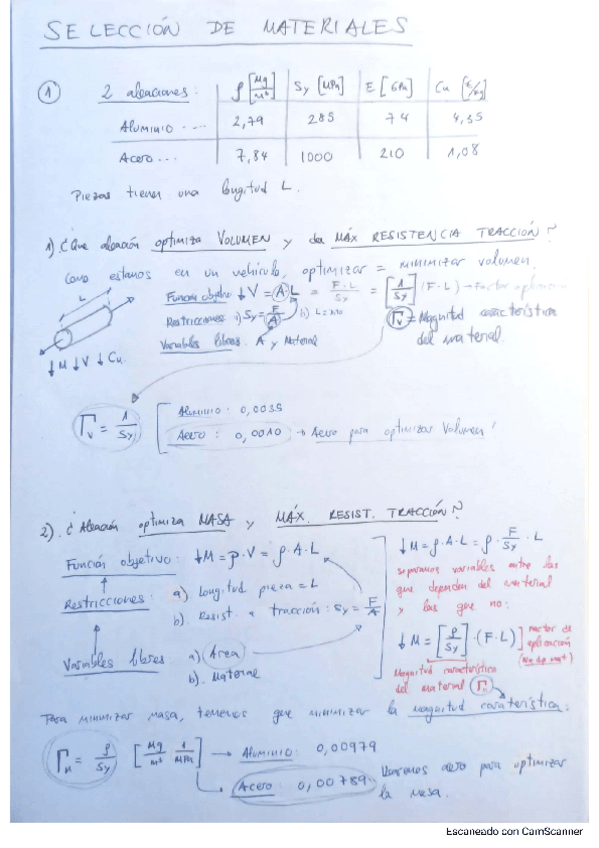 SELECCIÓN DE MATERIALES
① 2 aleaciones: ρ [Mg/m³] Sy [MPa] E [GPa] Cu [€/kg]
Aluminio ... 2,79 285 74 4,35
Acero ... 7,84 1000 210 1,08
Piezas tienen una longitud L.
1) ¿Que aleación optimiza VOLUMEN y da MÁX RESISTENCIA TRACCIÓN?
Como estamos en un vehículo, optimizar = minimizar volumen
L
Función objetivo ↓V = A·L = F·L/Sy = [1/Sy] (F·L) → Factor
Restricciones i) Sy = F/A
Variables libres. A y Material
Γv = Magnitud característica
del material.
↓M ↓V ↓Cu
Γv = 1/Sy
Aluminio: 0,0035
Acero: 0,0010 → Acero para optimizar Volumen
2). ¿Aleación optimiza MASA y MÁX. RESIST. TRACCIÓN?
Función objetivo: ↓M = ρ·V = ρ·A·L
Restricciones: a) Longitud pieza = L
b). Resist a tracción: Sy = F/A
Variables libres a) Área
b). Material
↓M = ρ·A·L = ρ·F/Sy·L
separamos variables entre las
que dependen del material
y las que no:
↓M = [ρ/Sy]·(F·L)] Factor de
aplicación
(No dp mat)
Magnitud característica
del material ΓM
Para minimizar masa, tenemos que minimizar la magnitud característica:
ΓM = ρ/Sy [Mg/m³ · 1/MPa] → Aluminio: 0,00979
Acero: 0,00784 Usaremos acero para optimizar
la masa.
Escaneado con CamScanner